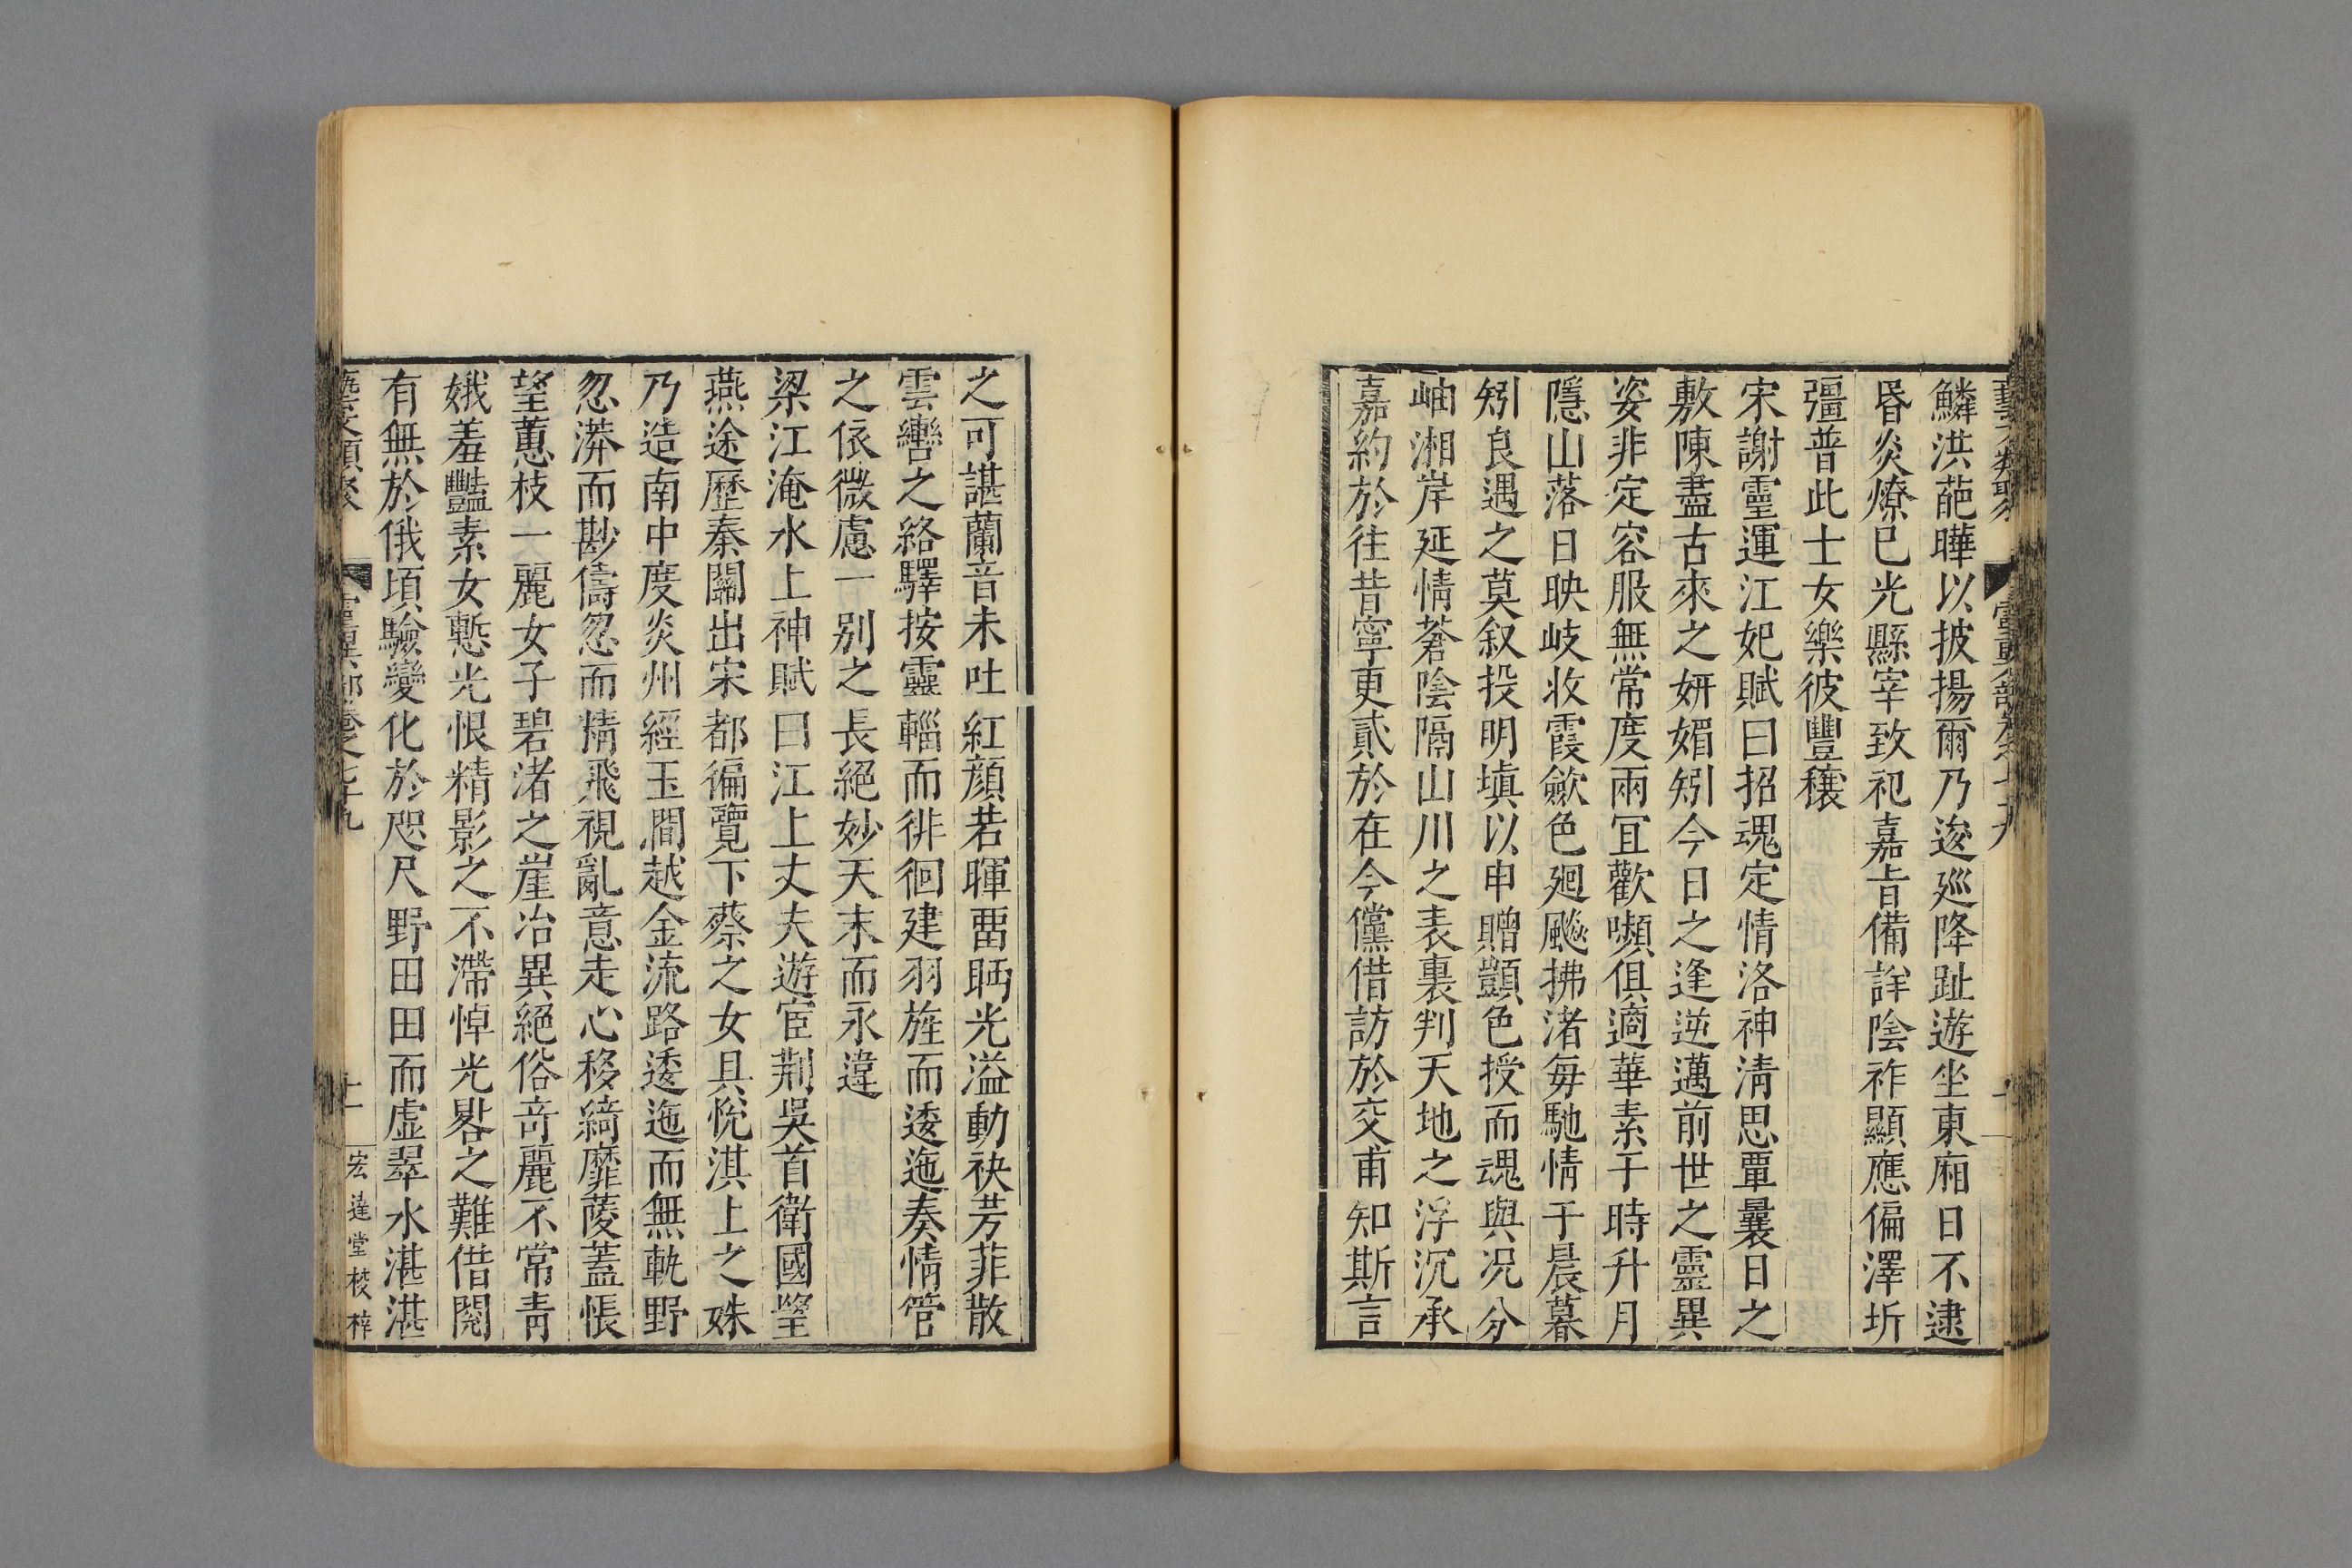 鱗洪葩曄以披揚爾乃逡巡降趾遊坐東廂日不逮
昏炎燎已光縣宰致祀嘉旨備詳陰祚顯應偏澤圻
彊普此士女樂彼豐穰
宋謝靈運江妃賦曰招魂定情洛神淸思覃曩日之
敷陳盡古來之妍媚矧今日之逢逆邁前世之靈異
姿非定容服無常度兩冝歡嚬俱適華素于時升月
隱山落日映岐收霞歛色廻飇拂渚每馳情于晨暮
矧良遇之莫叙投明塡以申贈覬色授而魂與况分
岫湘岸延情蒼陰隔山川之表裏判天地之浮沉承
嘉約於往昔寧更貳於在今儻借訪於交甫知斯言
之可諶蘭音未吐紅顔若暉畱眄光溢動袂芳菲散
雲轡之絡驛按靈輜而徘徊建羽旌而逶迤奏情管
之依微慮一别之長絕妙天末而永違
梁江淹水上神賦曰江上丈夫遊宦荆吳首衛國望
燕途歷秦關出宋都徧覽下蔡之女具悅淇上之姝
乃造南中度炎州經玉㵎越金流路逶迤而無軌野
忽漭而尠儔忽而精飛視亂意走心移綺靡菱蓋悵
望蕙枝一麗女子碧渚之崖冶異絕俗竒麗不常靑
娥羞豔素女慙光恨精影之不滯悼光晷之難借閱
有無於俄頃驗變化於咫尺野田田而虚翠水湛湛
藝文類聚 靈異部卷之七十九 十一 宏達堂校梓